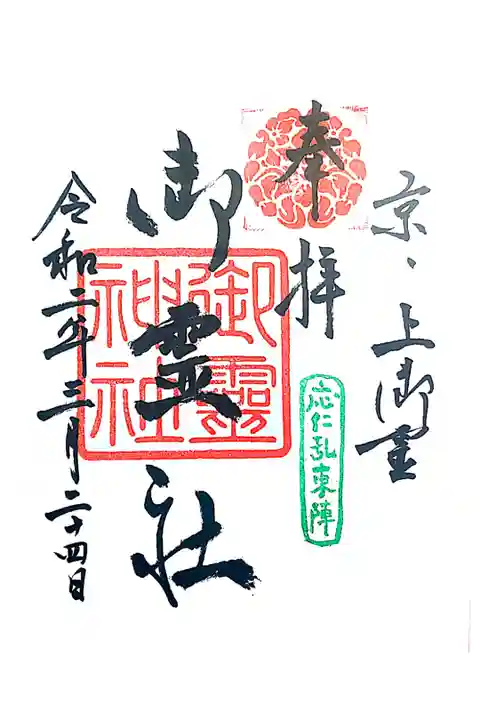 京、上御霊
奉拝
応仁乱東陣
御霊社
御霊神社
令和二年三月二十四日